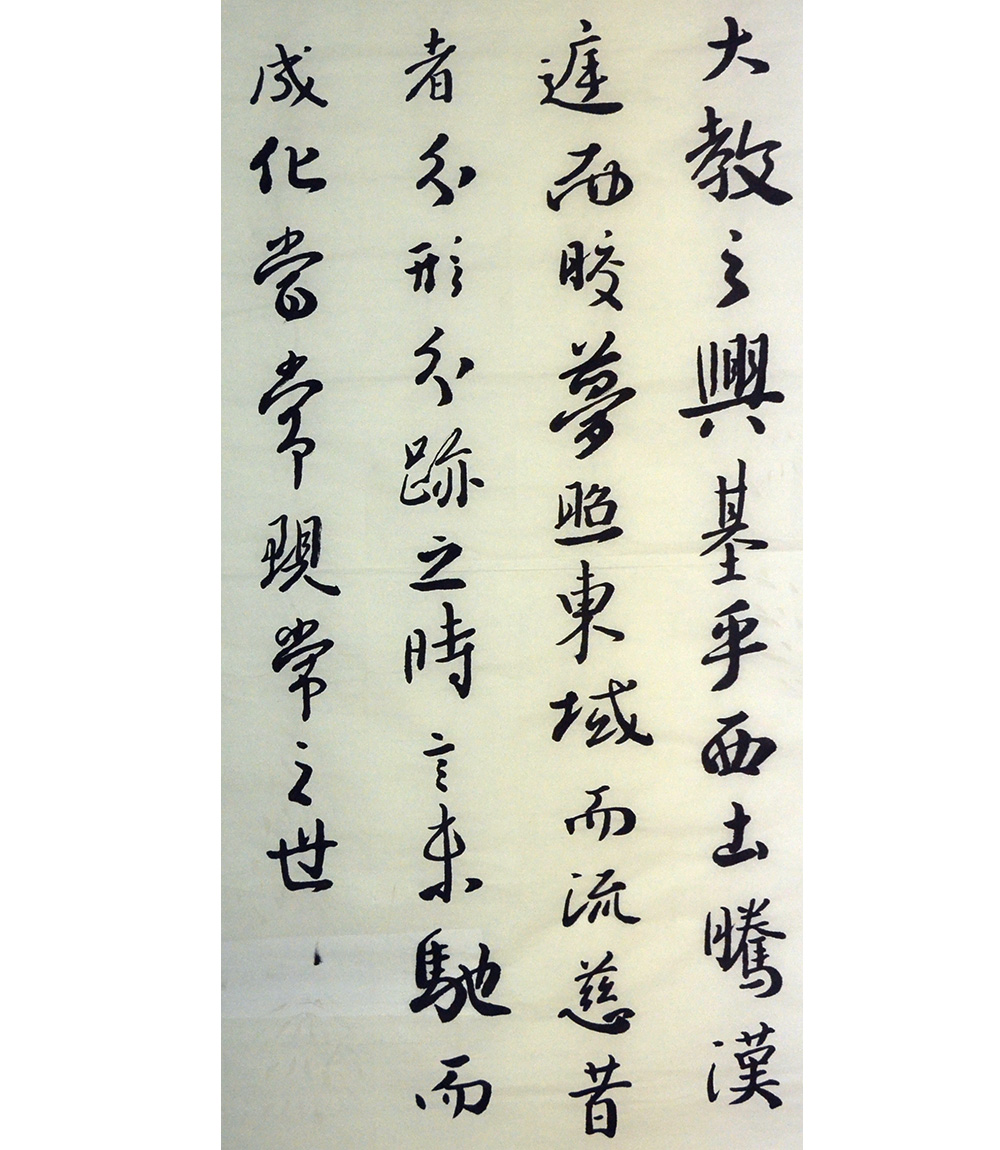 大教之興基乎西土騰漢
庭而皎夢照東域而流慈昔
者分形分跡之時言未馳而
成化當常現常之世